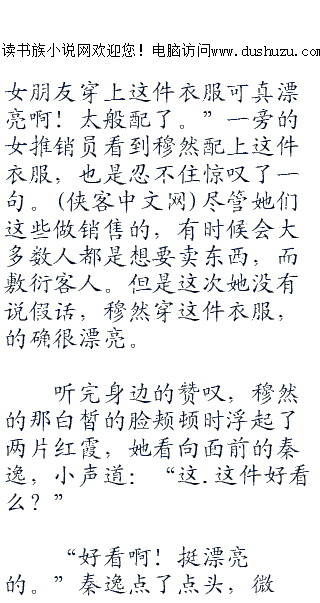 读书族小说网欢迎您！电脑访问www.dushuzu.com
女朋友穿上这件衣服可真漂
亮啊！太般配了。”一旁的
女推销员看到穆然配上这件
衣服，也是忍不住惊叹了一
句。(侠客中文网)尽管她们
这些做销售的，有时候会大
多数人都是想要卖东西，而
敷衍客人。但是这次她没有
说假话，穆然穿这件衣服，
的确很漂亮。
听完身边的赞叹，穆然
的那白皙的脸颊顿时浮起了
两片红霞，她看向面前的秦
逸，小声道：“这.这件好看
么？”
“好看啊！挺漂亮
的。”秦逸点了点头，微